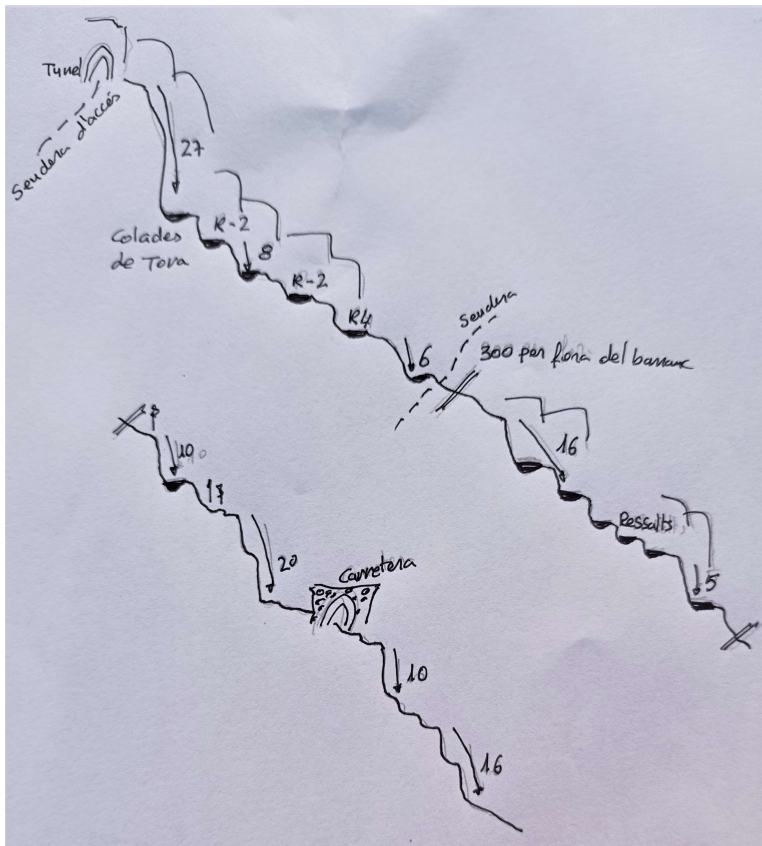 Tunel
Sendera d'accés
27
Colades
de Tova
R-2
8
R-2
R4
6
Sendera
300 per fiora del barranc
16
Ressalts
5
10
20
Carretera
10
16